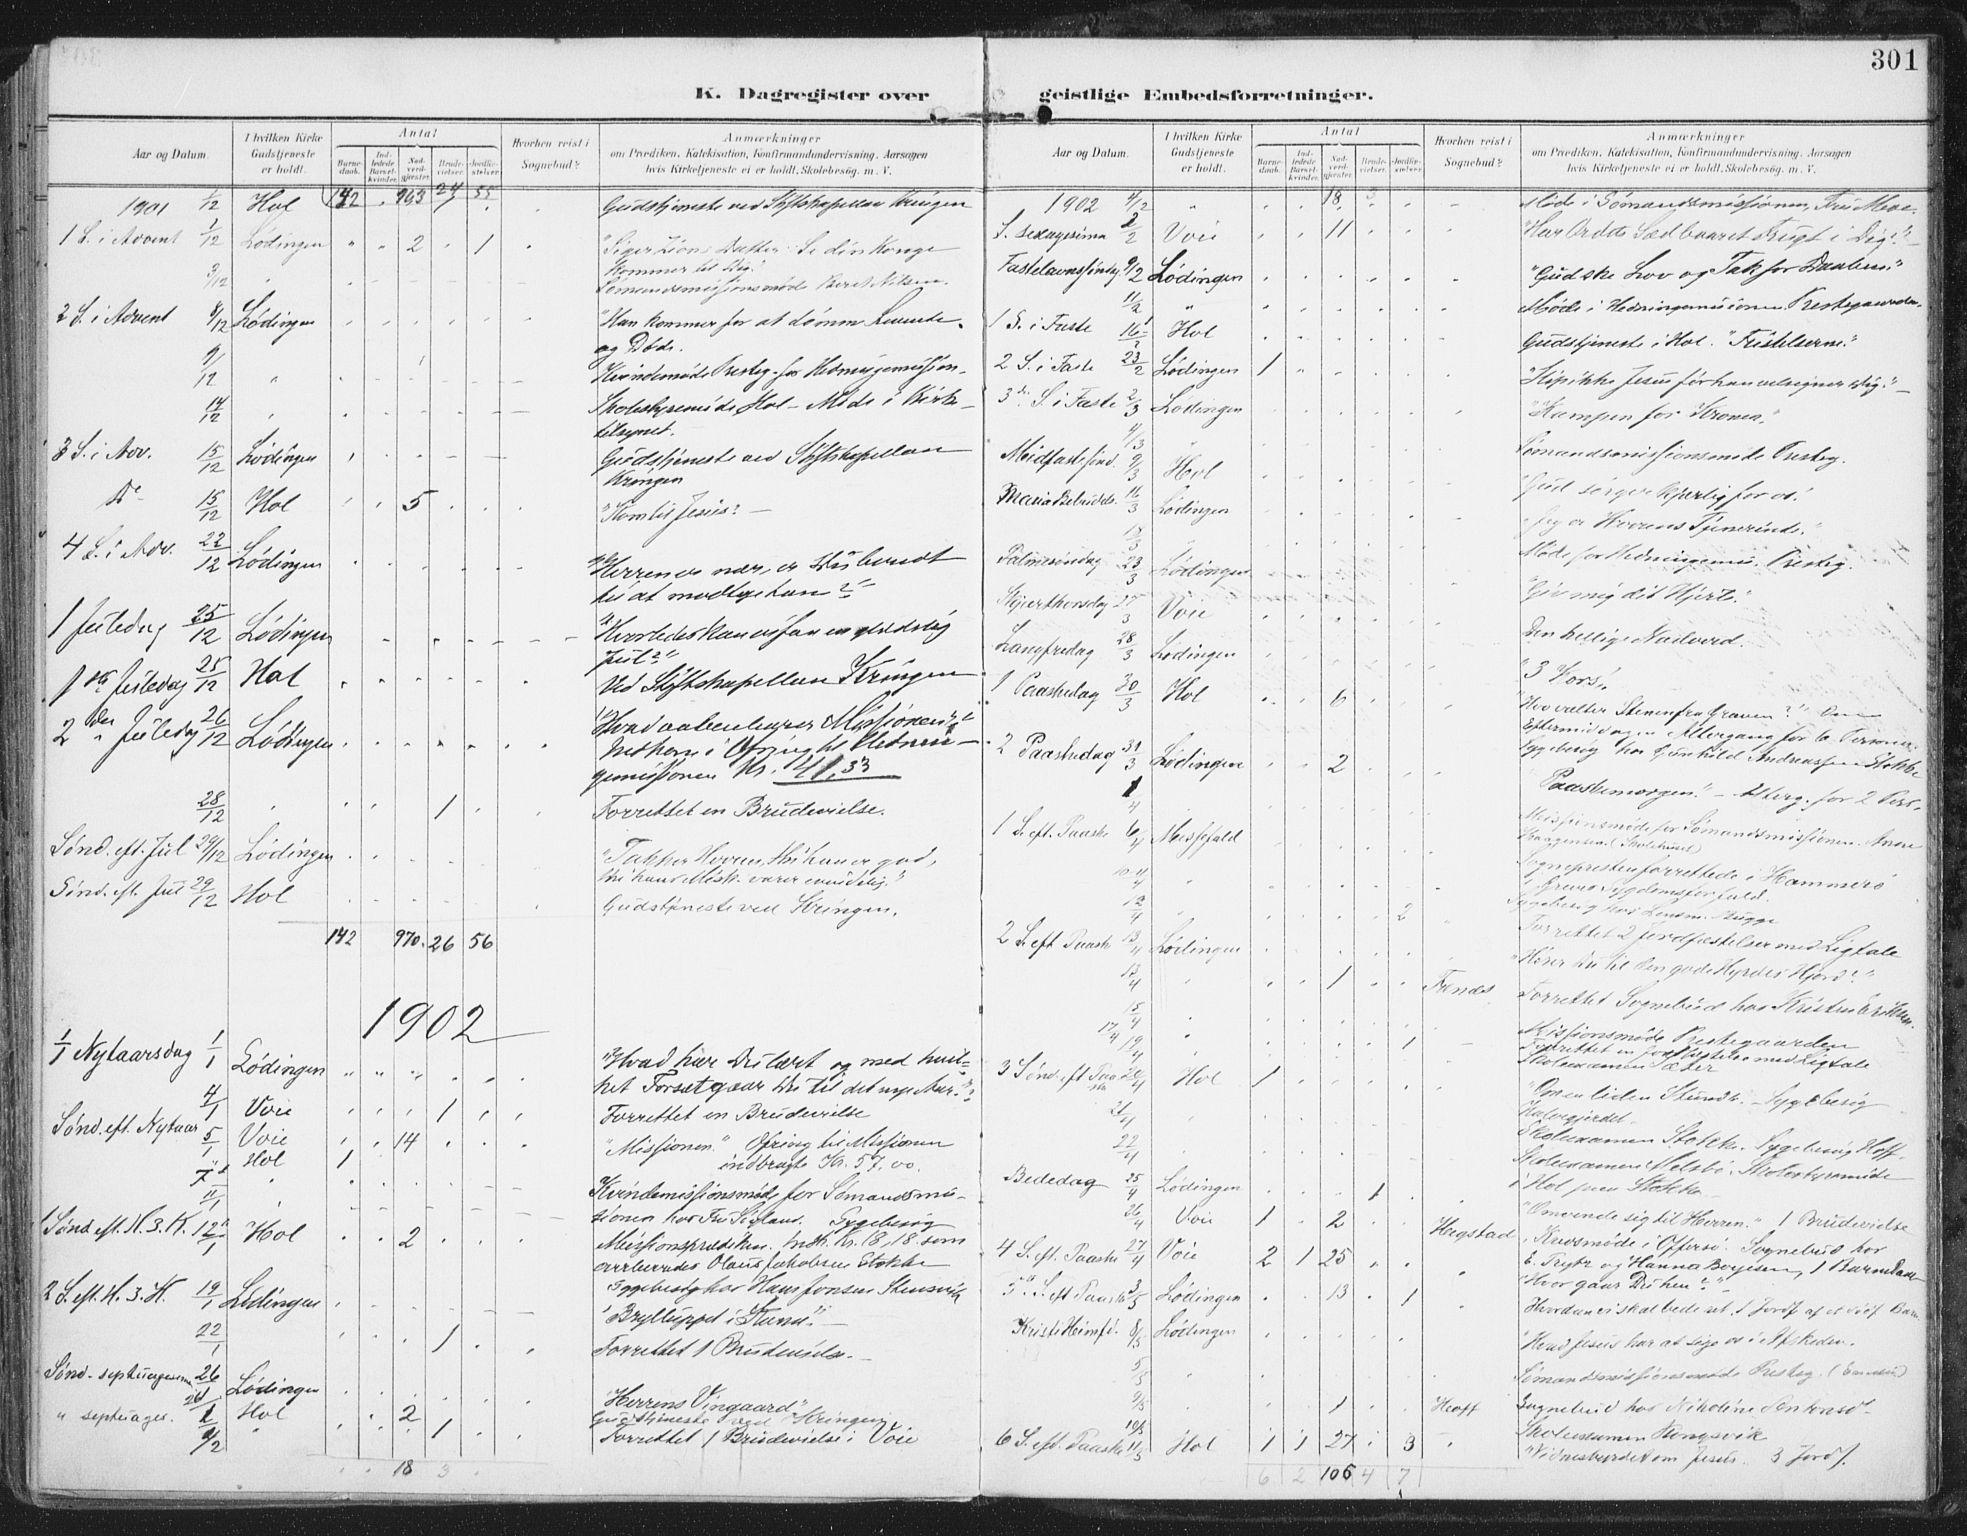 301
K. Dagregister over geistlige Embedsforretninger.
Aar og Datum. I hvilken Kirke Gudstjeneste er holdt. Antal Barnedaab. Indledede Barselkvinder. Nadverdgjester. Brudevielser. Jordfæstelser. Hvorhen reist i Sognebud? Anmærkninger om Prædiken, Katekisation, Konfirmandundervisning. Aarsagen hvis Kirketjeneste ei er holdt. Skolebesøg. m. V.
1901 1/12 Hol 142 963 24 55 Gudstjeneste ved Stiftskapellan Kringen
1 S. i Advent 1/12 Lødingen 2 1 "Siger Zions Datter: Se din Konge
kommer til Dig."
3/12 Sømandsmissionsmøde Beret Nilsen.
2 S. i Advent 8/12 Lødingen "Han kommer for at dømme Levende
og Døde.
9/12 Kvindemøde Presteg. for Hedningemission
14/12 Skolestyremøde Hol – Møde i Kirke-
tilsynet.
3 S. i Adv. 15/12 Lødingen Gudstjeneste ved Stiftskapellan
Kringen
Do 15/12 Hol 5 "Kom til Jesus" –
4 S. i Adv. 22/12 Lødingen "Herren er nær, er Du beredt
til at modtage ham?"
1 Juledag 25/12 Lødingen "Hvorledes kan vi faa en glædelig
Jul?"
1ste Juledag 25/12 Hol Ved Stiftskapellan Kringen
2den Juledag 26/12 Lødingen "Hvad aabenbarer Missionen?"
Indkom i Ofring til Hednin-
gemissionen Kr. 41,33
28/12 1 Forrettet en Brudevielse.
Sønd. eft. Jul 29/12 Lødingen "Takker Herren, thi han er god,
thi hans Misk. varer evindelig."
Sønd. eft. Jul 29/12 Hol Gudstjeneste ved Kringen.
142 970 26 56
1902
1/1 Nytaarsdag 1/1 Lødingen "Hvad har Du lært og med hvil-
ket Forset gaar Du til det nye Aar?"
4/1 Voie 1 Forrettet en Brudevielse
Sønd. eft. Nytaar 5/1 Voie 14 "Missionen" Ofring til Missionen
Hol 1 indbragte Kr. 57,00.
7/1 Kvindemissionsmøde for Sømandsmis-
11/1 sionen hos Fru Sigland. Sygebesøg
1 Sønd eft. H. 3. K. 12/1 Hol 2 Missionsprædiken. Indk. Kr. 18,18 som
Olaus Jakobsen Stokke
Sygebesøg hos Hans Jonsen Stensvik
2 S. eft. H. 3. K. 19/1 Lødingen "Bryllupet i Kana" –
22/1 1 Forrettet 1 Brudevielse. –
Sønd. septuagesima 26/1 Lødingen "Herrens Vingaard"
" septuages. 26/1 Hol 2 Gudstjeneste ved Kringen
2/2 1 Forrettet 1 Brudevielse i Voie
18 3
Aar og Datum. I hvilken Kirke Gudstjeneste er holdt. Antal Barnedaab. Indledede Barselkvinder. Nadverdgjester. Brudevielser. Jordfæstelser. Hvorhen reist i Sognebud? Anmærkninger om Prædiken, Katekisation, Konfirmandundervisning. Aarsagen hvis Kirketjeneste ei er holdt. Skolebesøg. m. V.
1902 4/2 18 3 Møde i Sømandsmissionen, Fru
S. sexagesima 2/2 Voie 11 "Har Ordets Sæd baaret Frugt i Dig?"
Fastelavnssøndag 9/2 Lødingen "Gud ske Lov og Tak for Daaben"
11/2 Møde i Hedningemissionen Prestegaarden
1 S. i Faste 16/2 Hol Gudstjeneste i Hol. "Fristelserne"
2 S. i Faste 23/2 Lødingen 1 "Slip ikke Jesus før han velsigner Dig" –
3die S. i Faste 2/3 Lødingen "Kampen for Kronen"
4/3 Sømandsmissionsmøde Presteg.
Midfastesønd. 9/3 Hol "Gud sørger kjærlig for os."
Maria Bebudelse 16/3 Lødingen "Jeg er Herrens Tjenerinde."
18/3 Møde for Hedningemis. Presteg.
Palmesøndag 23/3 Lødingen "Giv mig dit Hjerte."
Skjærthorsdag 27/3 Voie Den hellige Nadverd.
Langfredag 28/3 Lødingen "3 Kors"
1 Paaskedag 30/3 Hol 6 Hvo vælter Stenen fra Graven?"
Eftermiddagen Altergang for 6 Personer.
2 Paaskedag 31/3 Lødingen 2 Sygebesøg hos Gunhild Andreassen Stokke
"Paaskemorgen" – Alterg. for 2 Pers.
1/4 Missionsmøde for Sømandsmissionen. Anne
1 S. eft. Paaske 6/4 Messefald (Skolehuset)
Sognepresten forrettede i Hammerø
10-11/4 Grund Sygdomsforfald.
Sygebesøg hos Lensm. Rugge
12/4 2 Forrettet 2 Jordfæstelser med Ligtale
2 S. eft Paaske 13/4 Lødingen "Hører Du til den gode Hyrdes Hjord?"
13/4 1 Forrettet Sognebud hos Kristine Eriksen
15/4 Missionsmøde Prestegaarden
17/4 19/4 1 Forrettet en Jordfæstelse med Ligtale
Skoleexamen Sæter
3 Sønd. eft Paaske 20/4 Hol 1 "Om en liden Stund" – Sygebesøg
21/4
22/4 Skoleexamen Stokke. Sygebesøg Hoff
Skoleexamen Skolestyremøde
i Hol paa Stokke –
Bededag 25/4 Lødingen 1 "Omvende sig til Herren." 1 Brudevielse
26/4 Voie 1 2 Hegstad Kredsmøde i Offersø. Sognebud hos
4 S. eft. Paaske 27/4 Voie 2 1 25 E. Trytz og Hanna Borgesen, 1 Barnedaab
"Hvor gaar Du hen?"
5te S. eft Paaske 3/5 Lødingen 13 1 Hvordan vi skal bede ret. 1 Jordf. af et Barn
Kristi Himmf. 8/5 Lødingen "Hvad Jesus har at sige os i Afskeden.
5/5 Sømandsmissionsmøde Presteg.
9/5 1 Hoff Sognebud hos Nikoline
10/5 Skoleexamen Kongsvik
6 S. eft. Paaske 11/5 Hol 1 1 27 3 "Vidnesbyrdet om Jesus." 3 Jordf.
6 2 106 4 7